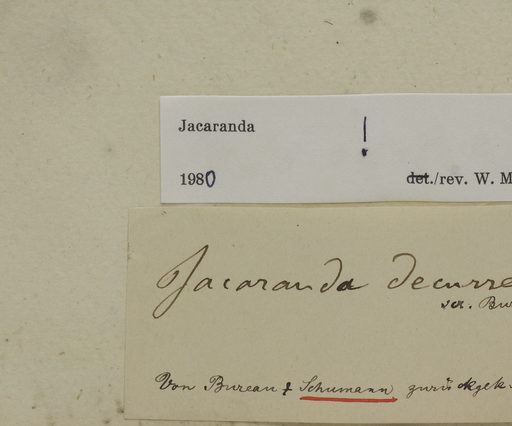 Jacaranda !
1980 det./rev. W. M
Jacaranda decurre
scr. Bu
Von Bureau & Schumann zurückgek.